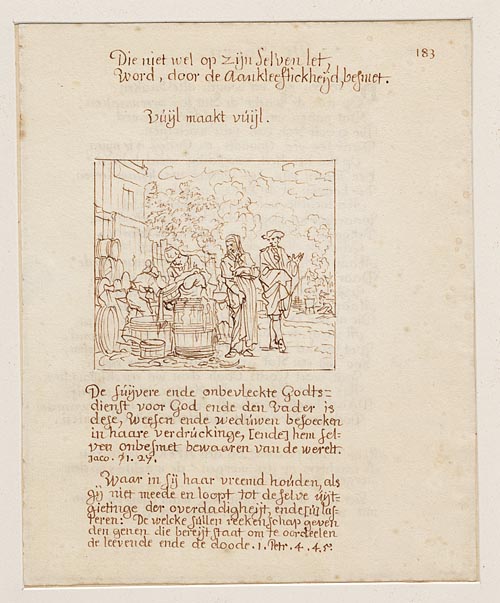 183
Die niet wel op zijn selven let,
Word, door de Aankleeflickheyd, besmet.
Vúÿl maakt vúÿl.
De súÿvere ende onbevleckte Godts-
dienst voor God ende den Vader is
dese, Weesen ende Weduwen besoecken
in haare verdrúckinge, [ende] hem sel-
ven onbesmet bewaaren van de werelt.
Jaco. 1. 27.
Waar in sij haar vreemd houden, als
gij niet meede en loopt tot deselve úÿt-
gietinge der overdadigheijt, ende súl las-
teren: De welcke súllen reekenschap geven
den genen die bereÿt staat om te oordeelen
de leevende ende de doode. 1. Petr. 4. 4. 5.